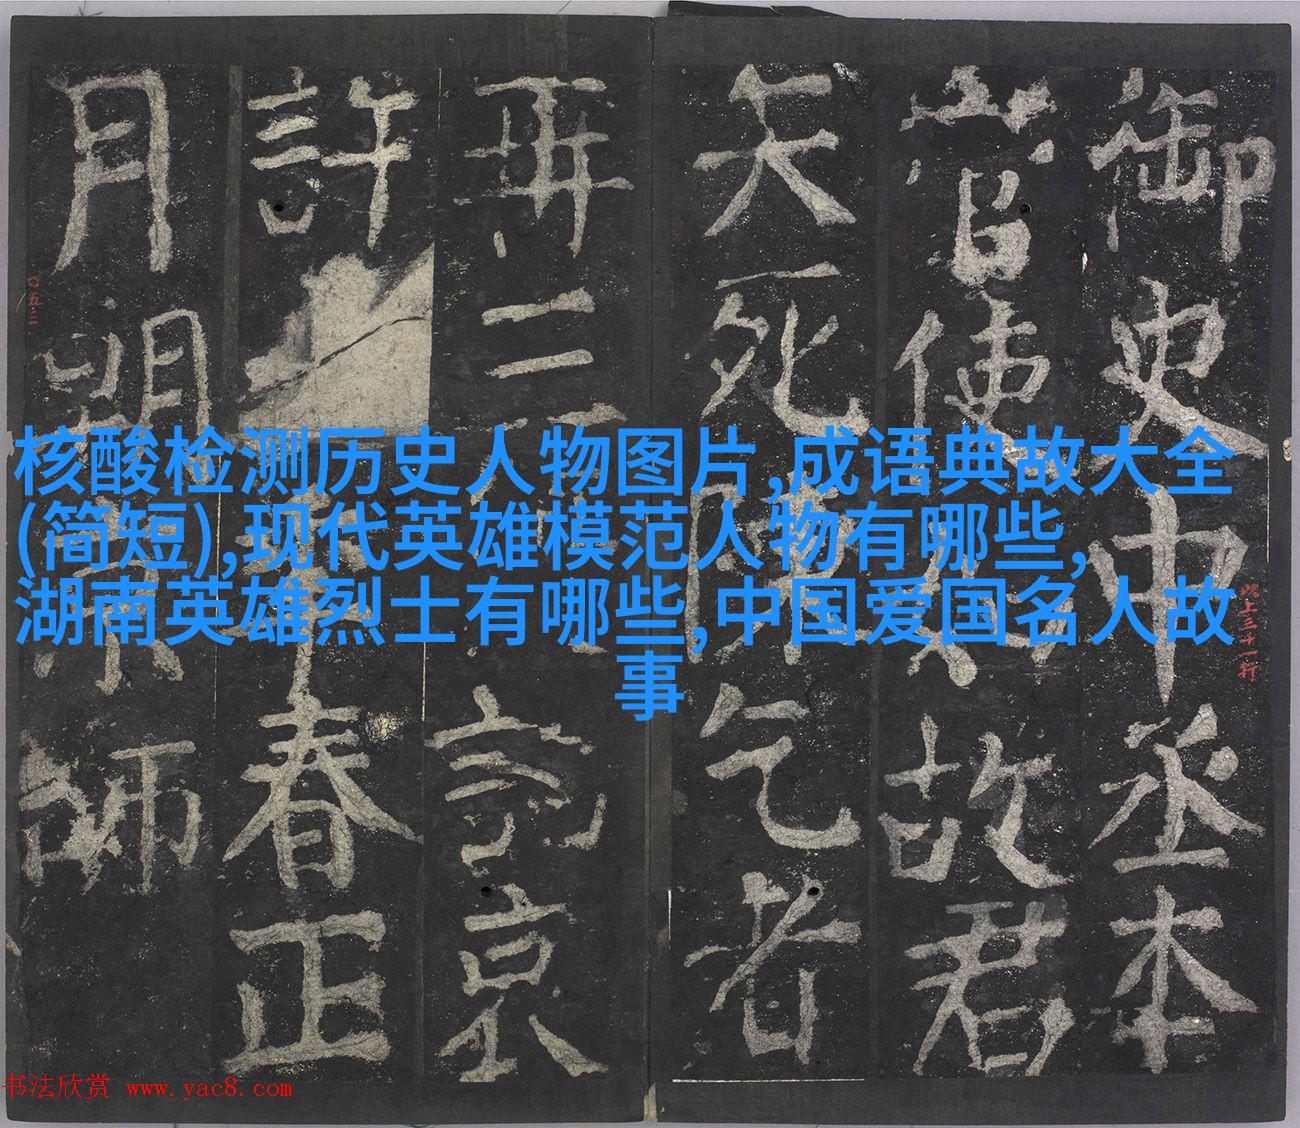 核酸检测历史人物图片,成语典故大全
(简短),现代英雄模范人物有哪些,
湖南英雄烈士有哪些,中国爱国名人故
事
御史中丞本
官使
故君
矢死
乞者
再二
京
許
春正
月朔
師
此上三十一行
〇五三
书法欣赏 www.yac8.com